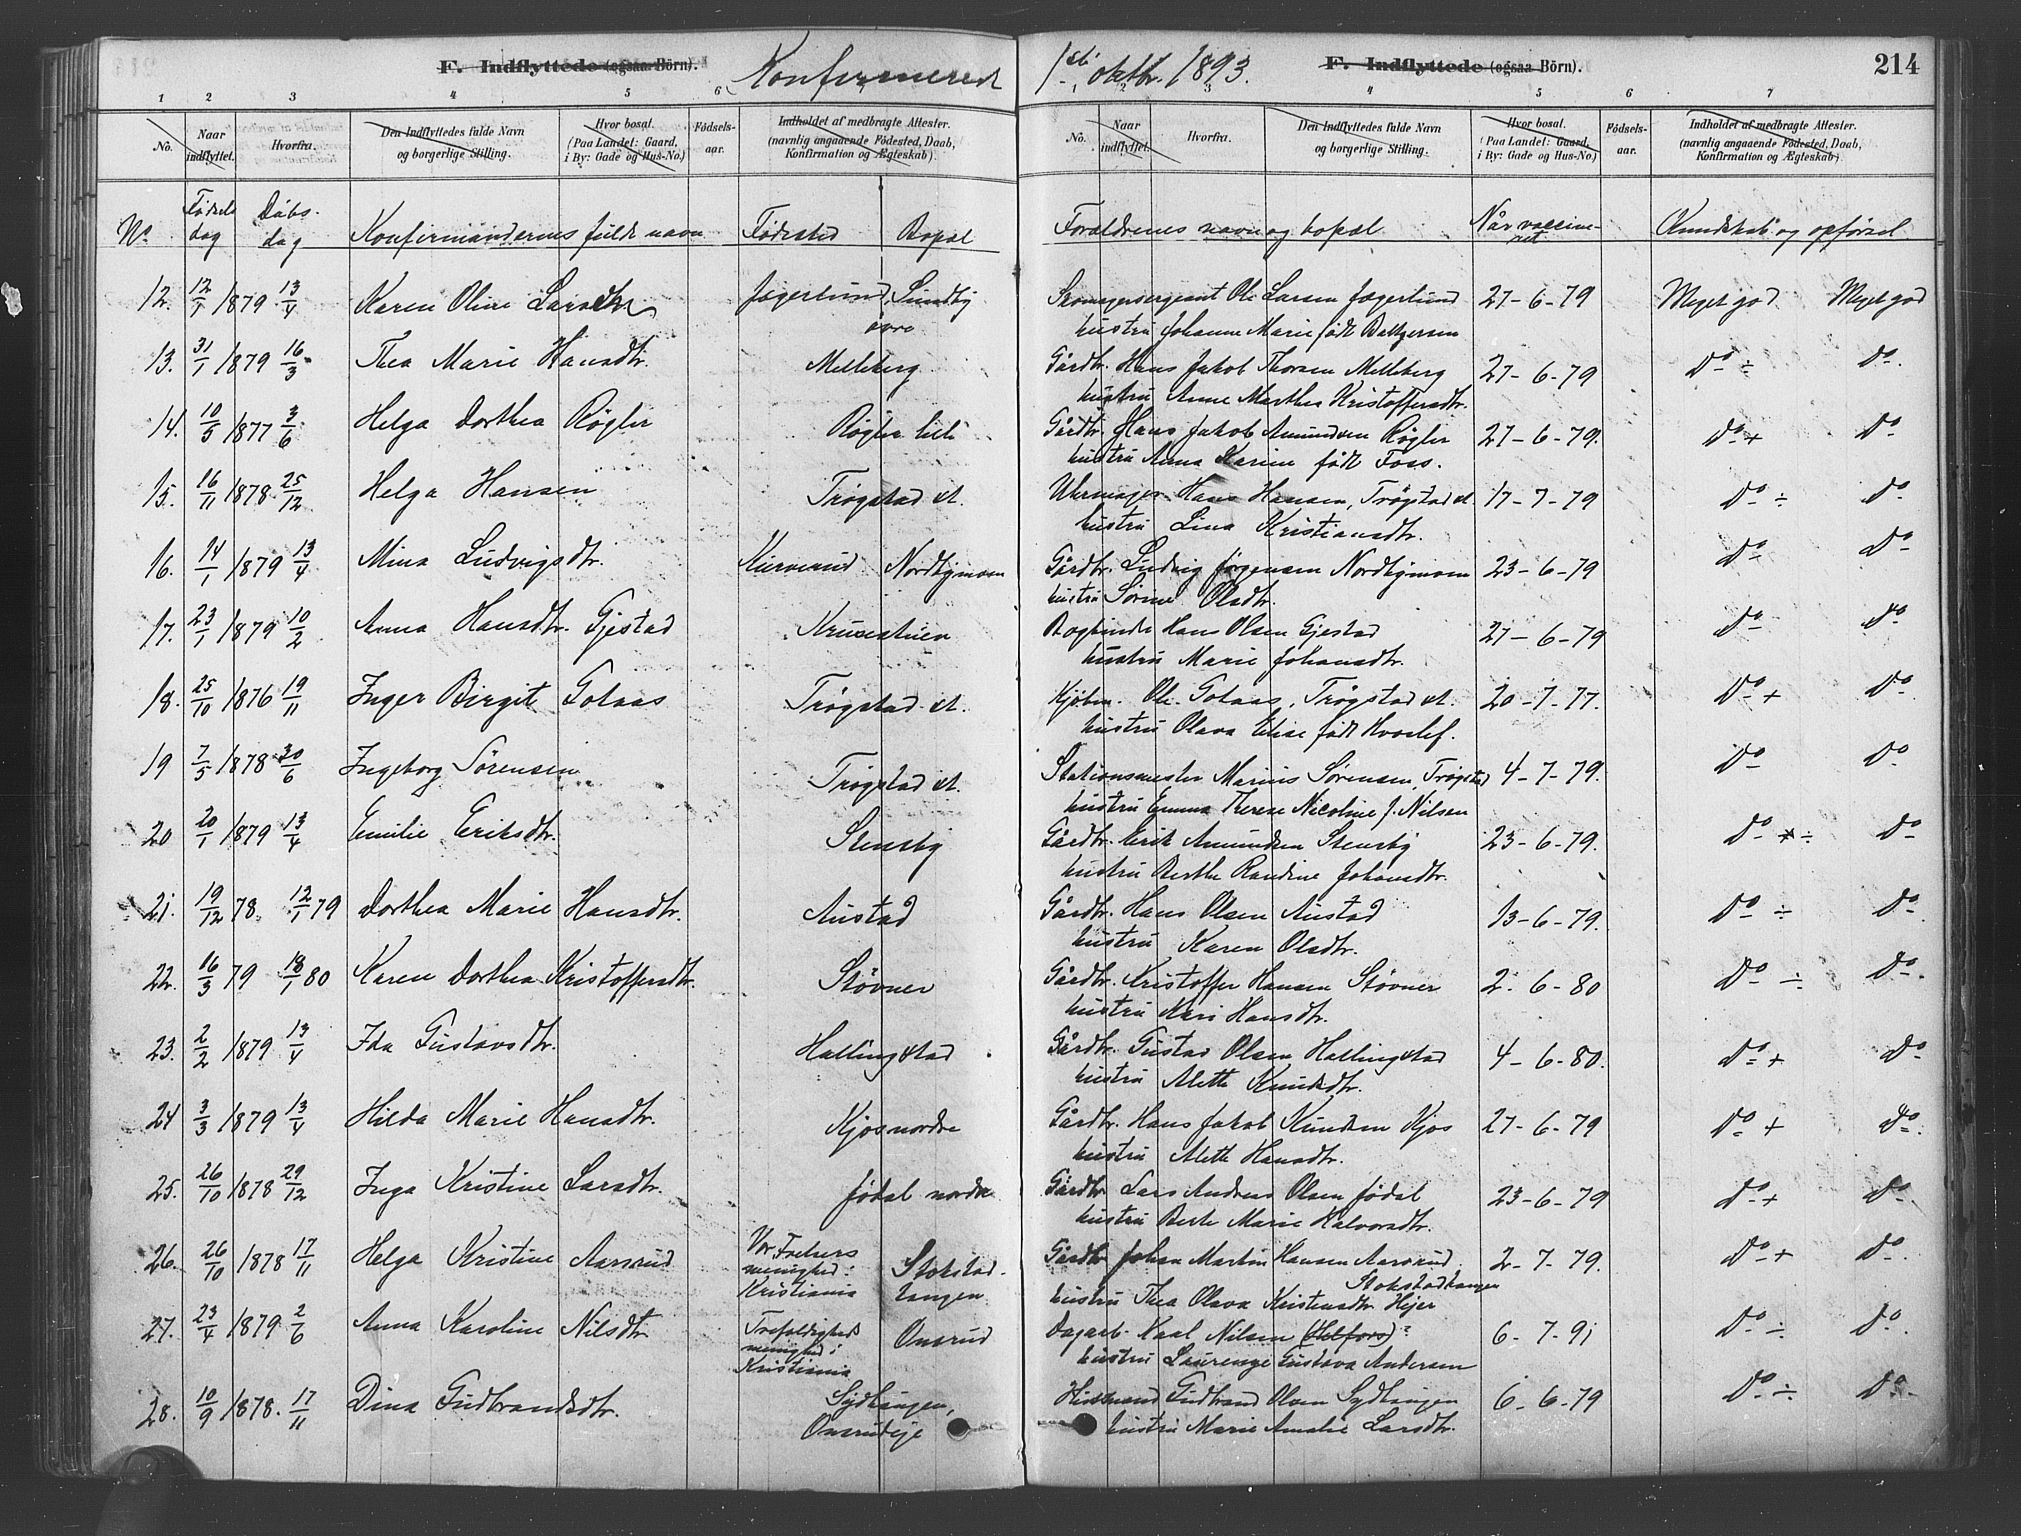 F. Indflyttede (ogsaa Börn).
Konfirmerede
1ste oktbr. 1893.
F. Indflyttede (ogsaa Börn).
214
1 2 3 4 5 6
1 2 3 4 5 6 7
No. Naar indflyttet. Hvorfra. Den Indflyttedes fulde Navn og borgerlige Stilling. Hvor bosat. (Paa Landet: Gaard, i By: Gade og Hus-No.) Fødsels-aar. Indholdet af medbragte Attester. (navnlig angaaende Fødested, Daab, Konfirmation og Ægteskab).
No. Naar indflyttet. Hvorfra. Den Indflyttedes fulde Navn og borgerlige Stilling. Hvor bosat. (Paa Landet: Gaard, i By: Gade og Hus-No.) Fødsels-aar. Indholdet af medbragte Attester. (navnlig angaaende Fødested, Daab, Konfirmation og Ægteskab).
No. Fødsels dag Dåbs-dag Konfirmandernes fulde navn Fødested Bopæl Forældrenes navn og bopæl Når vaccineret Kundskab og opførsel
12. 12/1 1879 13/4 Karen Oline Larsen Jægerlund Sundby øvre Ole Larsen Jægerlund 27-6-79 Meget god Meget god
hustru Johanne Marie født Baltzersen
13. 31/1 1879 16/3 Thea Marie Hansdtr. Melleberg Gårdbr. Hans Jakob Thorsen Melleberg 27-6-79 Do ÷ Do
hustru Anne Marthea Kristoffersdtr.
14. 10/5 1877 3/6 Helga Dorthea Røgler Røgler Gårdbr. Hans Jakob Amundsen Røgler 27-6-79. Do + Do
hustru Anna Karine født Foss.
15. 16/11 1878 25/12 Helga Hansen Trøgstad st. Uhrmager Hans Hansen, Trøgstad st. 17-7-79 Do ÷ Do
hustru Lina Kristiansdtr.
16. 14/1 1879 13/4 Mina Ludvigsdtr. Kierverud Nordbymoen Gårdbr. Ludvig Jørgensen Nordbymoen 23-6-79 Do Do
hustru Sørine Olsdtr.
17. 23/1 1879 10/2 Anna Hansdtr. Gjestad Krusestuen Bogbinder Hans Olsen Gjestad 27-6-79 Do Do
hustru Marie Johansdtr.
18. 25/10 1876 19/11 Inger Birgit Gotaas Trøgstad st. Kjøbm. Ole Gotaas, Trøgstad st. 20-7-77. Do + Do
hustru Olava Elise født Hvoslef.
19 7/5 1878 30/6 Ingeborg Sørensen Trøgstad st. Stationsmester Marius Sørensen, Trøgstad 4-7-79. Do Do
hustru Emma Therese Nicoline f. Nilsen
20 20/1 1879 13/4 Emilie Eriksdtr. Stensby Gårdbr. Erik Amundsen Stensby 23-6-79. Do + ÷ Do
hustru Berthe Randine Johansdtr.
21. 19/12 78 12/1 79 Dorthea Marie Hansdtr. Austad Gårdbr. Hans Olsen Austad 13-6-79. Do ÷ Do
hustru Karen Olsdtr.
22. 16/3 79 18/1 80 Karen Dorthea Kristoffersdtr. Støvner Gårdbr. Kristoffer Hansen Støvner 2-6-80 Do ÷ Do
hustru Kari Hansdtr.
23. 2/2 1879 13/4 Ida Gustavsdtr. Hallingstad Gårdbr. Gustav Olsen Hallingstad 4-6-80. Do + Do
hustru Alette Knudsdtr.
24 3/3 1879 13/4 Hilda Marie Hansdtr. Kjøs nordre Gårdbr. Hans Jakob Knudsen Kjøs 27-6-79 Do + Do
hustru Alette Hansdtr.
25. 26/10 1878 29/12 Inga Kristine Larsdtr. Jødal nordre Gårdbr Lars Andreas Olsen Jødal 23-6-79 Do + Do
hustru Berte Marie Halvorsdtr.
26. 26/10 1878 17/11 Helga Kristine Aarsrud Vor Frelsers menighed i Kristiania Stokstadtangen Gårdbr Johan Martin Hansen Aarsrud Stokstadtangen 2-7-79. Do + Do
hustru Thea Olava Kristensdtr. Hejer
27. 23/4 1879 2/6 Anna Karoline Nilsdtr Trefoldigheds menighed i Kristiania Onsrud Dagarb. Karl Nilsen 6-7-91 Do ÷ Do
hustru Laurense Gustava Andersen
28. 10/9 1878. 17/11 Dina Gudbrandsdtr. Sydtangen, Onsrudeje Husmand Gudbrand Olsen Sydtangen 6-6-79 Do ÷ Do
hustru Marie Amalie Larsdtr.